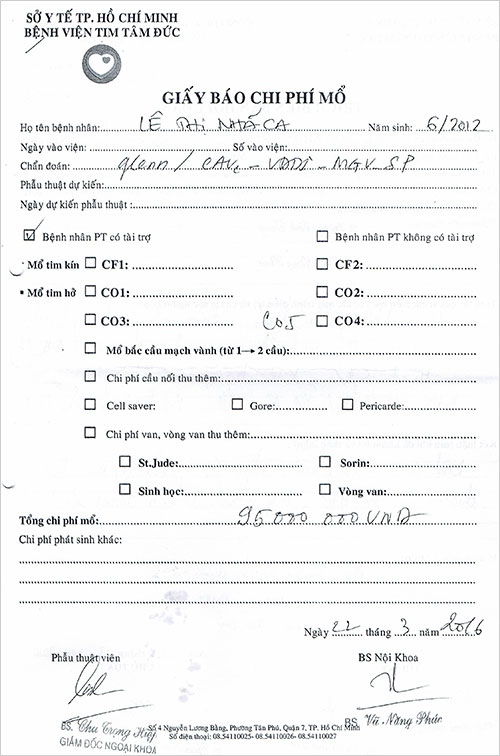 SỞ Y TẾ TP. HỒ CHÍ MINH
BỆNH VIỆN TIM TÂM ĐỨC
GIẤY BÁO CHI PHÍ MỔ
Họ tên bệnh nhân: LÊ THỊ NHÃ CA Năm sinh: 6/2012
Ngày vào viện: Số vào viện:
Chẩn đoán: glenn / CAVc - VDDI - MGV - SP
Phẫu thuật dự kiến:
Ngày dự kiến phẫu thuật :
☑ Bệnh nhân PT có tài trợ ☐ Bệnh nhân PT không có tài trợ
• Mổ tim kín ☐ CF1: ☐ CF2:
• Mổ tim hở ☐ CO1: ☐ CO2:
☐ CO3: CO5 ☐ CO4:
☐ Mổ bắc cầu mạch vành (từ 1→ 2 cầu):
☐ Chi phí cầu nối thu thêm:
☐ Cell saver: ☐ Gore: ☐ Pericarde:
☐ Chi phí van, vòng van thu thêm:
☐ St.Jude: ☐ Sorin:
☐ Sinh học: ☐ Vòng van:
Tổng chi phí mổ: 95 000 000 VNĐ
Chi phí phát sinh khác:
Ngày 22 tháng 3 năm 2016
Phẫu thuật viên BS Nội Khoa
BS. Chu Trọng Hiệp BS. Vũ Năng Phúc
GIÁM ĐỐC NGOẠI KHOA
Số 4 Nguyễn Lương Bằng, Phường Tân Phú, Quận 7, TP. Hồ Chí Minh
Số điện thoại: 08.54110025- 08.54110026- 08.54110027